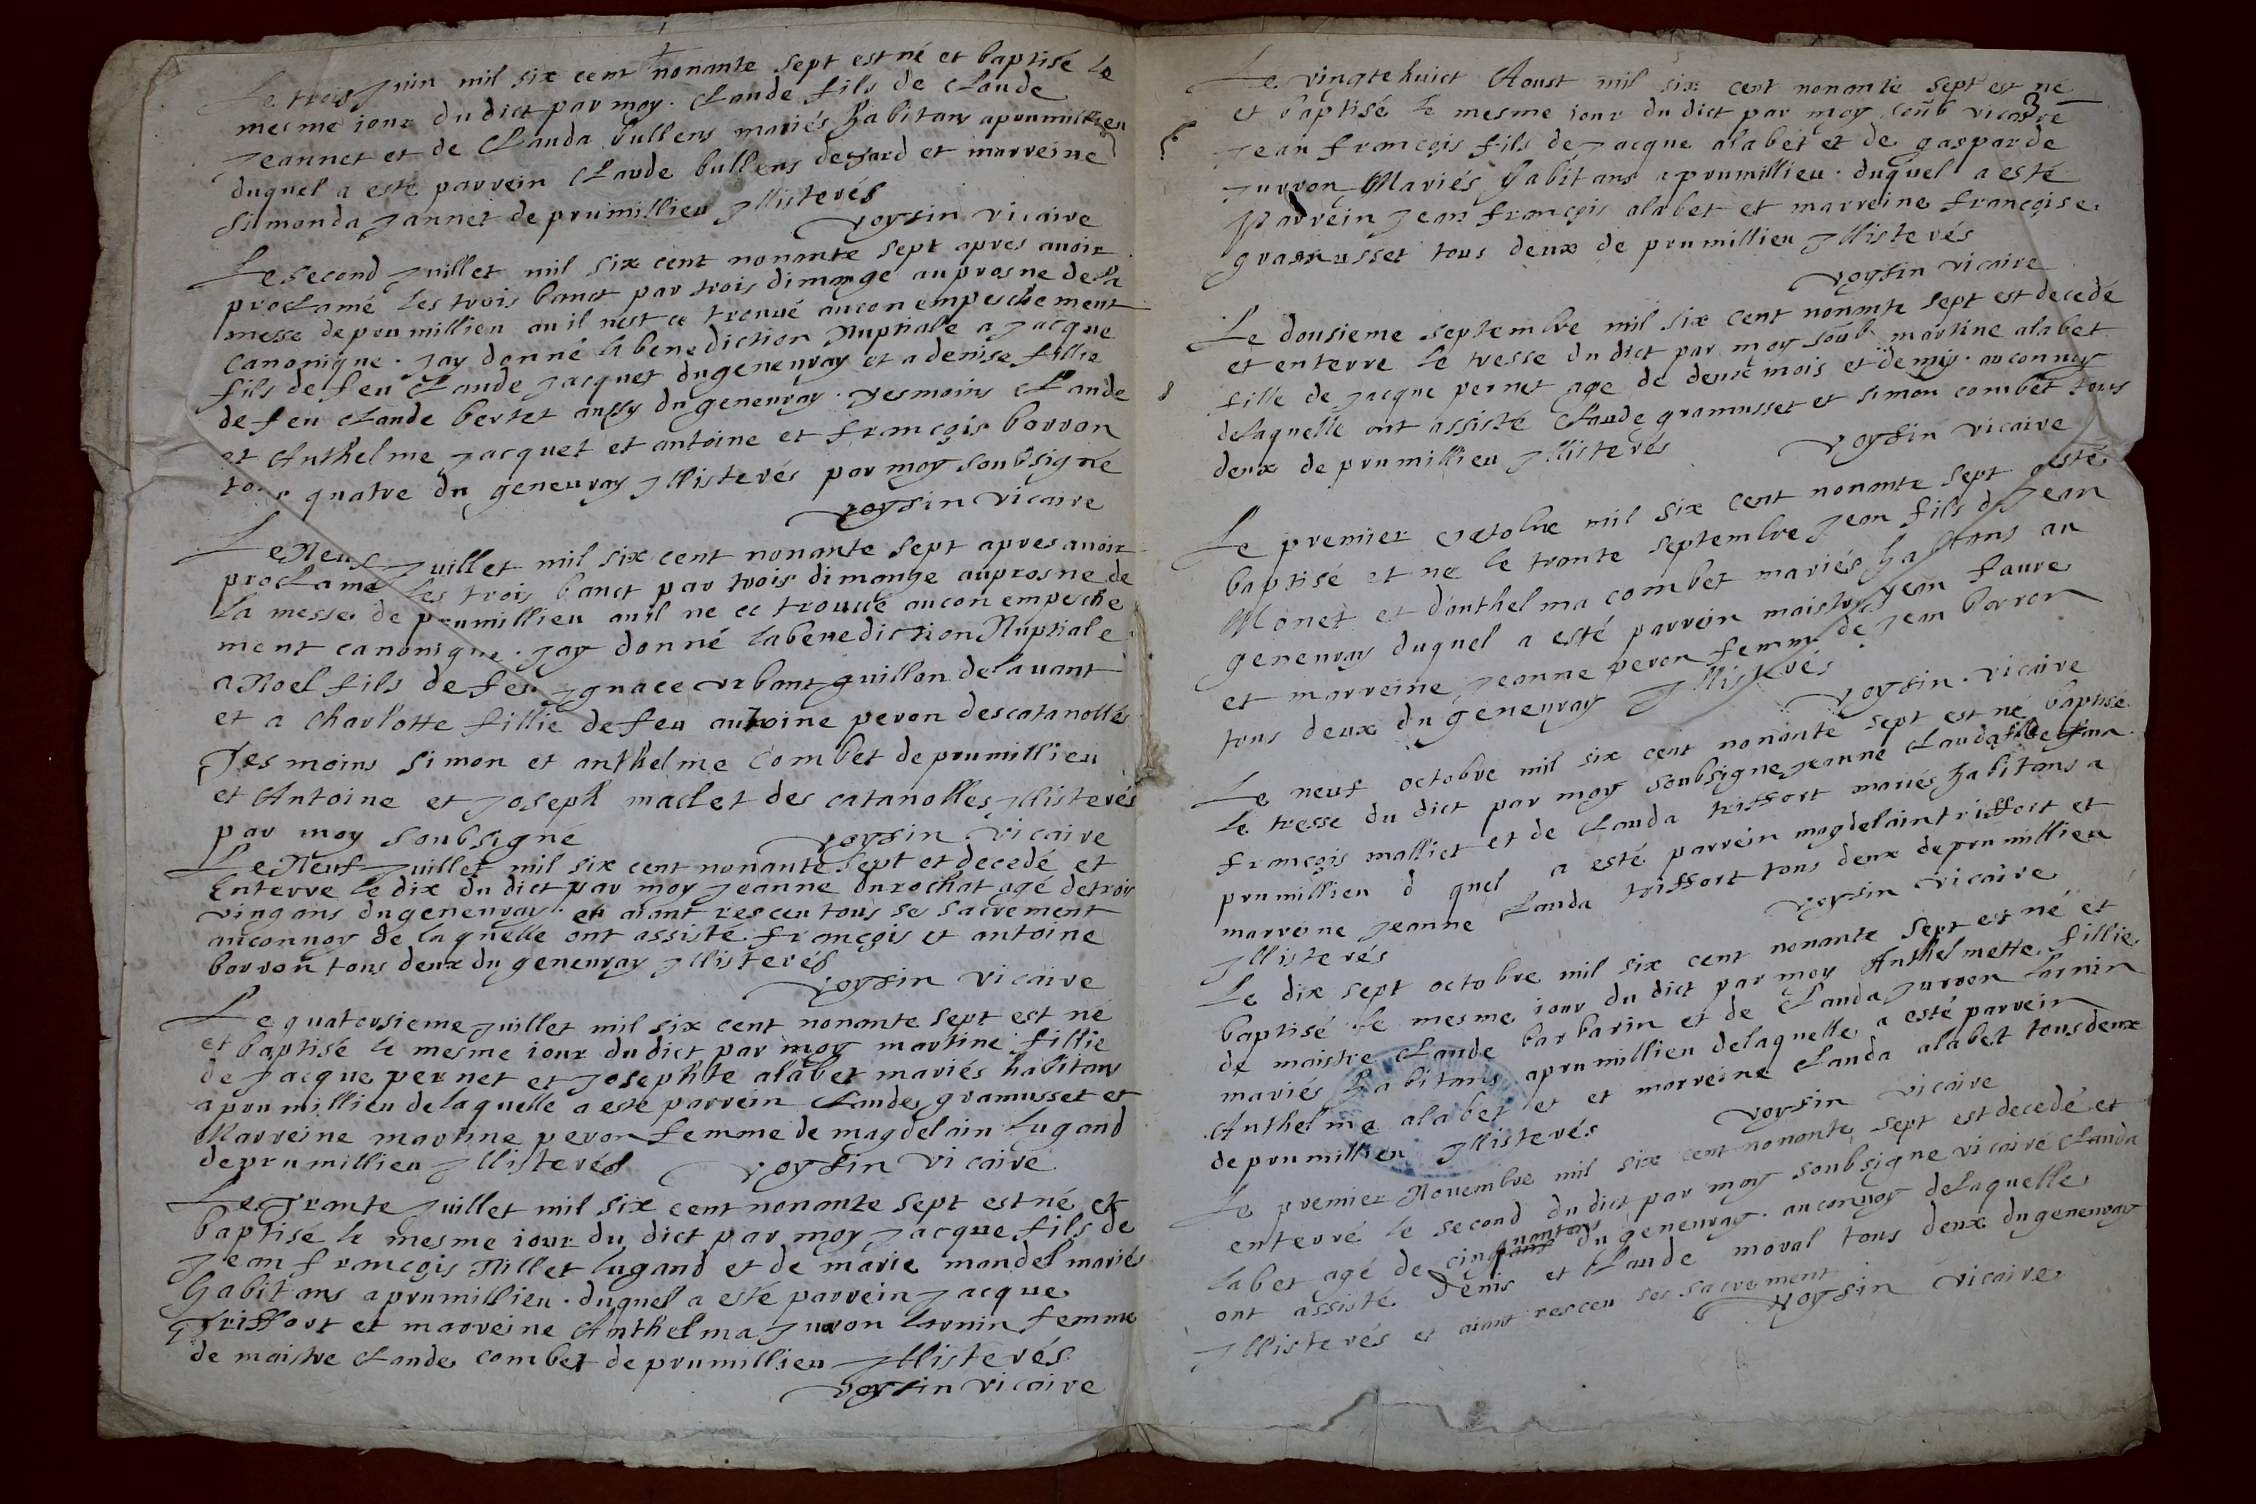 Le trois Juin mil six cent nonante sept est né et baptisé le
mesme iour du dict par moy. Claude fils de Claude
Jeannet et de Clauda bullens mariés habitans a prumillieu
duquel a esté parrein Claude bullens et marreine
Simonda Jannet de prumillieu Illisterés
voysin vicaire
Le second Juillet mil six cent nonante sept apres auoir
proclamé les trois banct par trois dimange au prosne de la
messe de prumillieu ou il nest ce trouué aucon empeschement
canonique. Jay donné la benediction Nuptiale a Jacque
fils de feu Claude Jacquet du geneuray et a denise fillie
de feu Claude bertet aussy du geneuray. Tesmoins Claude
et Anthelme Jacquet et antoine et françois borron
tous quatre du geneuray Illisterés par moy soubsigné
voysin vicaire
Le Neuf Juillet mil six cent nonante sept apres auoir
proclamé les trois banct par trois dimange au prosne de
la messe de prumillieu ou il ne ce trouué aucon empesche
ment canonique. Jay donné la benediction Nuptiale
a Noel fils de feu Ignace vrbant guillon de lauant
et a charlotte fillie de feu antoine peron des catanolles
Tesmoins simon et anthelme Combet de prumillieu
et Antoine et Joseph maclet des catanolles Illisterés
par moy soubsigné voysin vicaire
Le Neuf Juillet mil six cent nonante sept et decedé et
Enterre le dix du dict par moy Jeanne durochat agé de trois
ving ans du geneuray et aiant resceu tous se sacrement
au conuoy de laquelle ont assisté françois et antoine
borron tous deux du geneuray Illisterés
voysin vicaire
Le quatorsieme Juillet mil six cent nonante sept est né
et baptisé le mesme iour du dict par moy martine fillie
de Jacque pernet et Josephte alabet mariés habitans
a prumillieu de laquelle a esté parrein Claude gramusset et
Marreine martine peron femme de magdelain lugand
de prumillieu Illisterés voysin vicaire
Le Trante Juillet mil six cent nonante sept est né et
baptisé le mesme iour du dict par moy Jacque fils de
Jean françois Millet lugand et de marie mandel mariés
habitans a prumillieu. duquel a esté parrein Jacque
Triffort et marreine Anthelma Juron larnin femme
de maistre Claude combet de prumillieu Illisterés
voysin vicaire
Le vingtehuict Aoust mil six cent nonante sept est né
et baptisé le mesme iour du dict par moy soub vicaire
Jean françois fils de Jacque alabet et de gasparde
Jurron Mariés habitans a prumillieu. duquel a esté
Parrein Jean françois alabet et marreine françoise
gramusset tous deux de prumillieu Illisterés
voysin vicaire
Le dousieme septembre mil six cent nonante sept est decedé
et enterre le tresse du dict par moy soub martine alabet
fille de Jacque pernet age de deuse mois et demy. au conuoy
delaquelle ont assisté Claude gramusset et simon combet tous
deux de prumillieu Illisterés voysin vicaire
Le premier octobre mil six cent nonante sept a esté
baptisé et né le trante septembre Jean fils de Jean
Monet et danthelma combet mariés habitans au
geneuray duquel a esté parrein maistre Jean faure
et marreine Jeanne peron femme de Jean borron
tous deux du geneuray Illisterés
voysin. vicaire
Le neuf octobre mil six cent nonante sept est né baptisé
le tresse du dict par moy soubsigne Jeanne Clauda fille
françois malliet et de Clauda triffort mariés habitans a
prumillieu d quel a esté parrein magdelain triffort et
marreine Jeanne Clauda triffort tous deux de prumillieu
Illisterés voysin vicaire
Le dix sept octobre mil six cent nonante sept est né et
baptisé le mesme iour du dict par moy Anthelmette fillie
de maistre Claude barbarin et de Clauda Jurron larnin
mariés habitans a prumillieu delaquelle a esté parrein
Anthelme alabet et et marreine Clauda alabet tous deux
de prumillieu Illisterés voysin vicaire
Le premier Nouembre mil six cent nonante sept est decedé et
enterré le second du dict par moy soubsigne vicaire Clauda
labet agé de cinquantans du geneuray. au conuoy delaquelle
ont assisté Denis et Claude moral tous deux du geneuray
Illisterés et aiant resceu ses sacrement
voysin vicaire